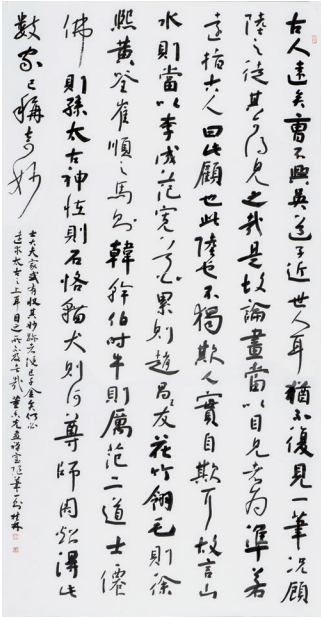 古人遠矣曹不興吳道子近世人耳猶不復見一筆況顧
陸之徒其可得見之哉是故論畫當以目見者為準若
遠指古人曰此顧也此陸也不獨欺人實自欺耳故言山
水則當以李成范寬花果則趙昌王友花竹翎毛則徐
熙黃筌崔順之馬則韓幹伯時牛則厲范二道士僊
佛則孫太古神怪則石恪貓犬則何尊師周炤得此
數家已稱奇妙
士大夫家或有收其妙跡者便已千金矣何必
遠求太古之上耳目之所不及者哉 畫禪室隨筆一則